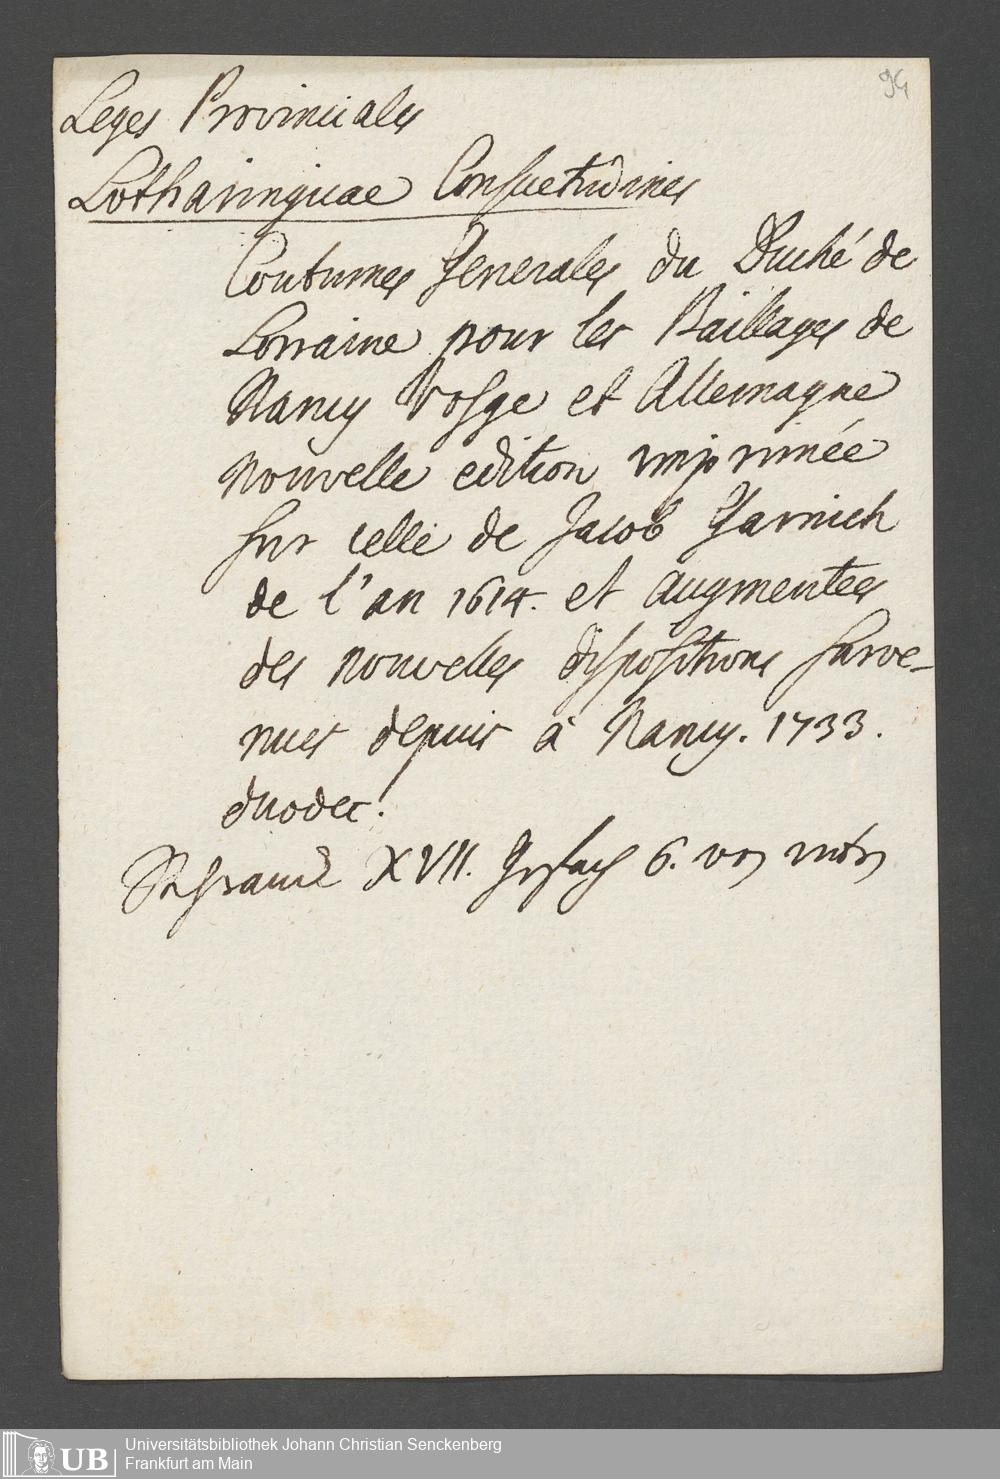 94
Leges Provinciales
Lotharingicae Consuetudines
Coutumes Generales du Duché de
Lorraine pour les Baillages de
Nancy Vosge et Allemagne
Nouvelle edition imprimée
sur celle de Jacob Garnich
de l'an 1614. et augmentees
des nouvelles dispositions surve-
nues depuis à Nancy. 1733.
duodec.
Schranck XVII. Gefach 6. von unten
UB
Universitätsbibliothek Johann Christian Senckenberg
Frankfurt am Main